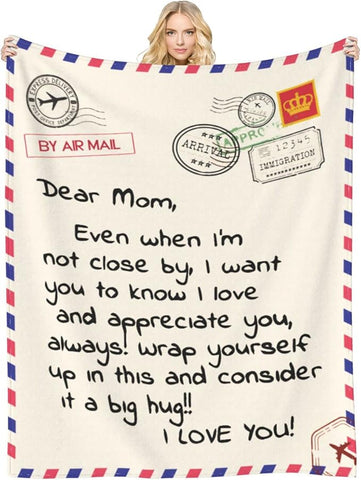 EXPRESS DELIVERY
BY AIR MAIL
ARRIVAL
APPRO
12345
IMMIGRATION
Dear Mom,
Even when I'm
not close by, I want
you to know I love
and appreciate you,
always! Wrap yourself
up in this and consider
it a big hug!!
I LOVE YOU!